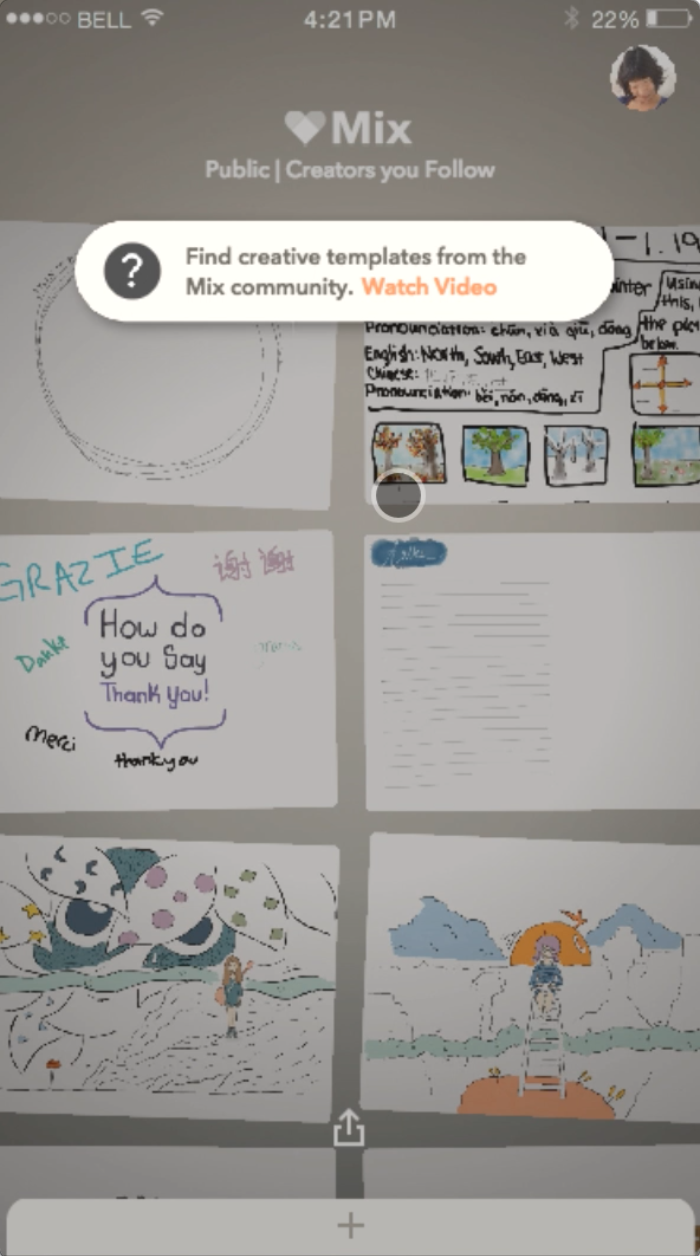 BELL 4:21PM 22%
Mix
Public | Creators you Follow
?
Find creative templates from the
Mix community. Watch Video
Pronounciation: chūn, xià qiū, dōng
the
below.
English: North, South, East, West
Chinese:
Pronunciation: běi, nán, dōng, xī
GRAZIE
谢谢
How do
you Say
Thank You!
Danke
Merci
thankyou
+